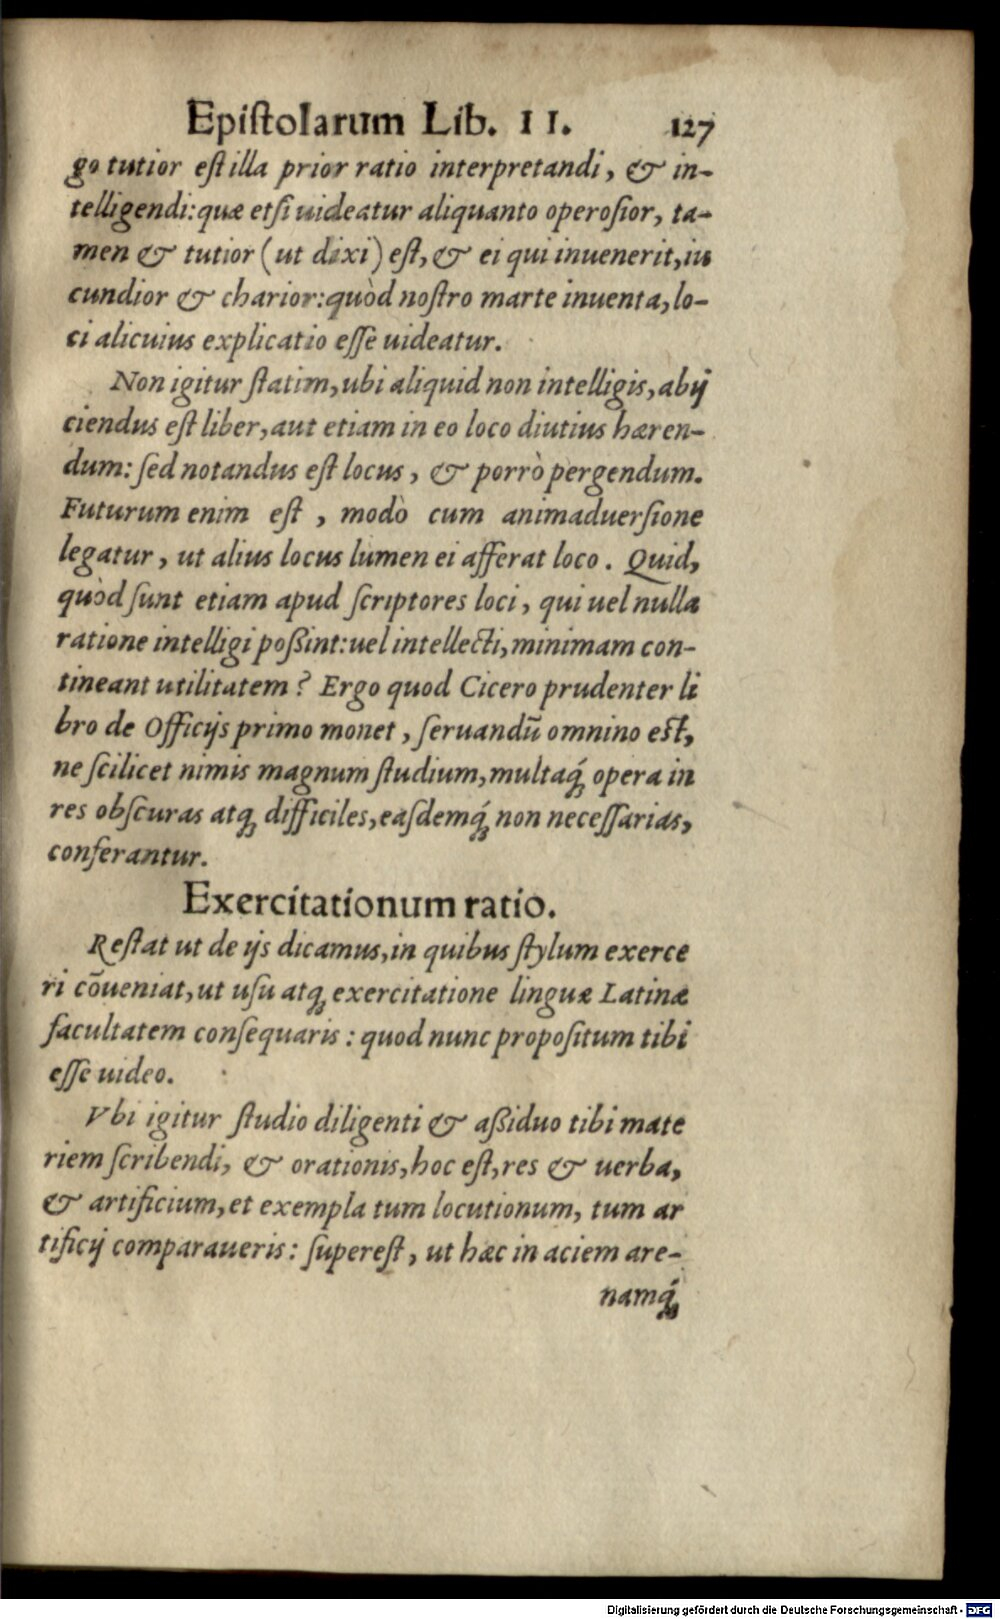 Epiſtolarum Lib. II. 127
go tutior eſt illa prior ratio interpretandi, & in-
telligendi: quæ etſi uideatur aliquanto operoſior, ta-
men & tutior (ut dixi) eſt, & ei qui inuenerit, iu
cundior & charior: quòd noſtro marte inuenta, lo-
ci alicuius explicatio eſſe uideatur.
Non igitur ſtatim, ubi aliquid non intelligis, abij
ciendus eſt liber, aut etiam in eo loco diutius hæren-
dum: ſed notandus eſt locus, & porrò pergendum.
Futurum enim eſt, modò cum animaduerſione
legatur, ut alius locus lumen ei afferat loco. Quid,
quòd ſunt etiam apud ſcriptores loci, qui uel nulla
ratione intelligi poßint: uel intellecti, minimam con-
tineant utilitatem? Ergo quod Cicero prudenter li
bro de Officijs primo monet, ſeruandū omnino eſt,
ne ſcilicet nimis magnum ſtudium, multaq́; opera in
res obſcuras atq; difficiles, eaſdemq́; non neceſſarias,
conferantur.
Exercitationum ratio.
Reſtat ut de ijs dicamus, in quibus ſtylum exerce
ri cōueniat, ut uſu atq; exercitatione linguæ Latinæ
facultatem conſequaris: quod nunc propoſitum tibi
eſſe uideo.
Vbi igitur ſtudio diligenti & aßiduo tibi mate
riem ſcribendi, & orationis, hoc eſt, res & uerba,
& artificium, et exempla tum locutionum, tum ar
tificij comparaueris: ſupereſt, ut hæc in aciem are-
namq́;
Digitalisierung gefördert durch die Deutsche Forschungsgemeinschaft - DFG